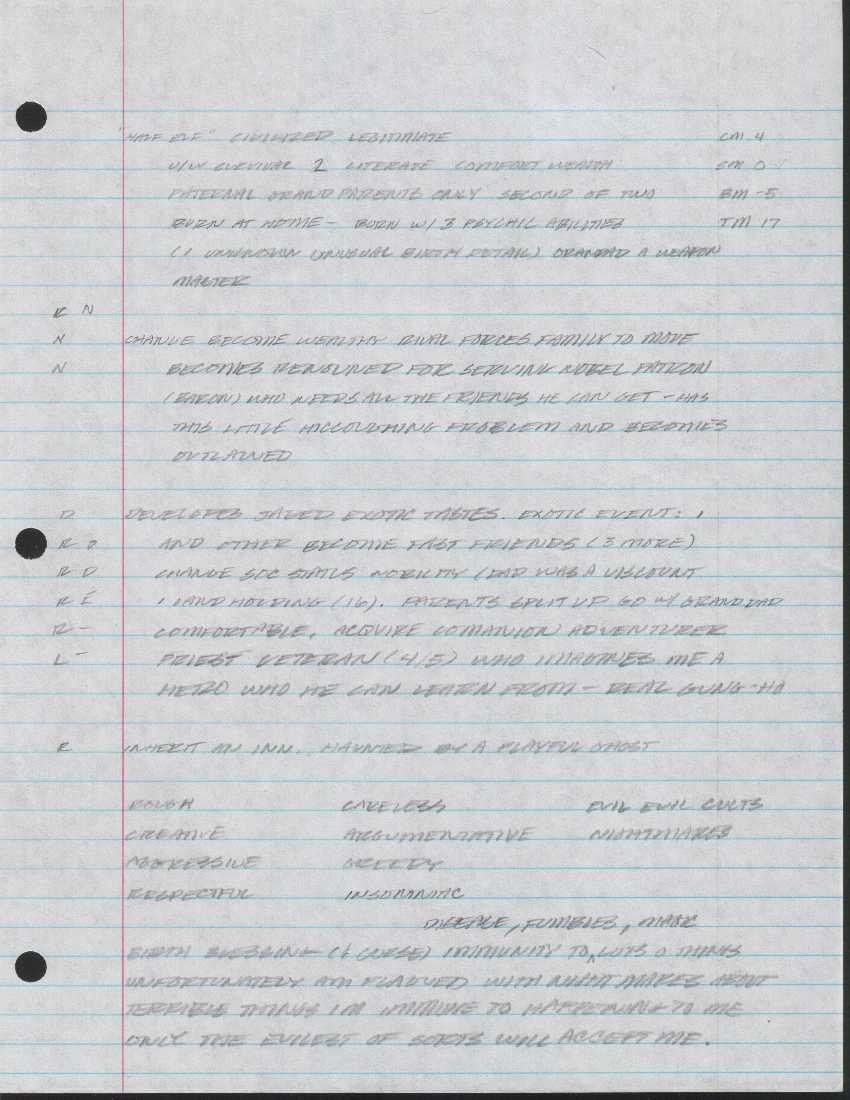 "HALF ELF" CIVILIZED LEGITIMATE CM 4
U/W SURVIVAL 2 LITERATE COMFORT WEALTH SM 0
PATERNAL GRANDPARENTS ONLY SECOND OF TWO BM -5
BORN AT HOME - BORN W/ 3 PSYCHIC ABILITIES TM 17
(1 UNKNOWN UNUSUAL BIRTH DETAIL) GRANDAD A WEAPON
MASTER
R N
N CHANGE BECOME WEALTHY RIVAL FORCES FAMILY TO MOVE
N BECOMES RENOUNED FOR SERVING NOBEL PATRON
(BARON) WHO NEEDS ALL THE FRIENDS HE CAN GET - HAS
THIS LITTLE PROBLEM AND BECOMES
OUTLAWED
D DEVELOPES JADED EXOTIC TASTES. EXOTIC EVENT: 1
R D AND OTHER BECOME FAST FRIENDS (3 MORE)
R D CHANGE SOC STATUS NOBILITY (DAD WAS A VISCOUNT
R E 1 LAND HOLDING (16). PARENTS SPLIT UP GO W/ GRANDDAD
R - COMFORTABLE, ACQUIRE COMANION) ADVENTURER
L - PRIEST VETERAN (4/5) WHO IMAGINES ME A
HERO WHO HE CAN LEARN FROM - REAL GUNG-HO
R INHERIT AN INN. HAUNTED BY A PLAYFUL GHOST
ROUGH CARELESS EVIL EVIL CULTS
CREATIVE ARGUMENTATIVE NIGHTMARES
AGGRESSIVE GREEDY
RESPECTFUL INSOMNIAC
DISEASE, FUMBLES, MAGIC
BIRTH BLESSING (& CURSE) IMMUNITY TO ^ LOTS O THINGS
UNFORTUNATELY AM PLAGUED WITH NIGHTMARES ABOUT
TERRIBLE THINGS I'M IMMUNE TO HAPPENING TO ME
ONLY THE EVILEST OF SORTS WILL ACCEPT ME.